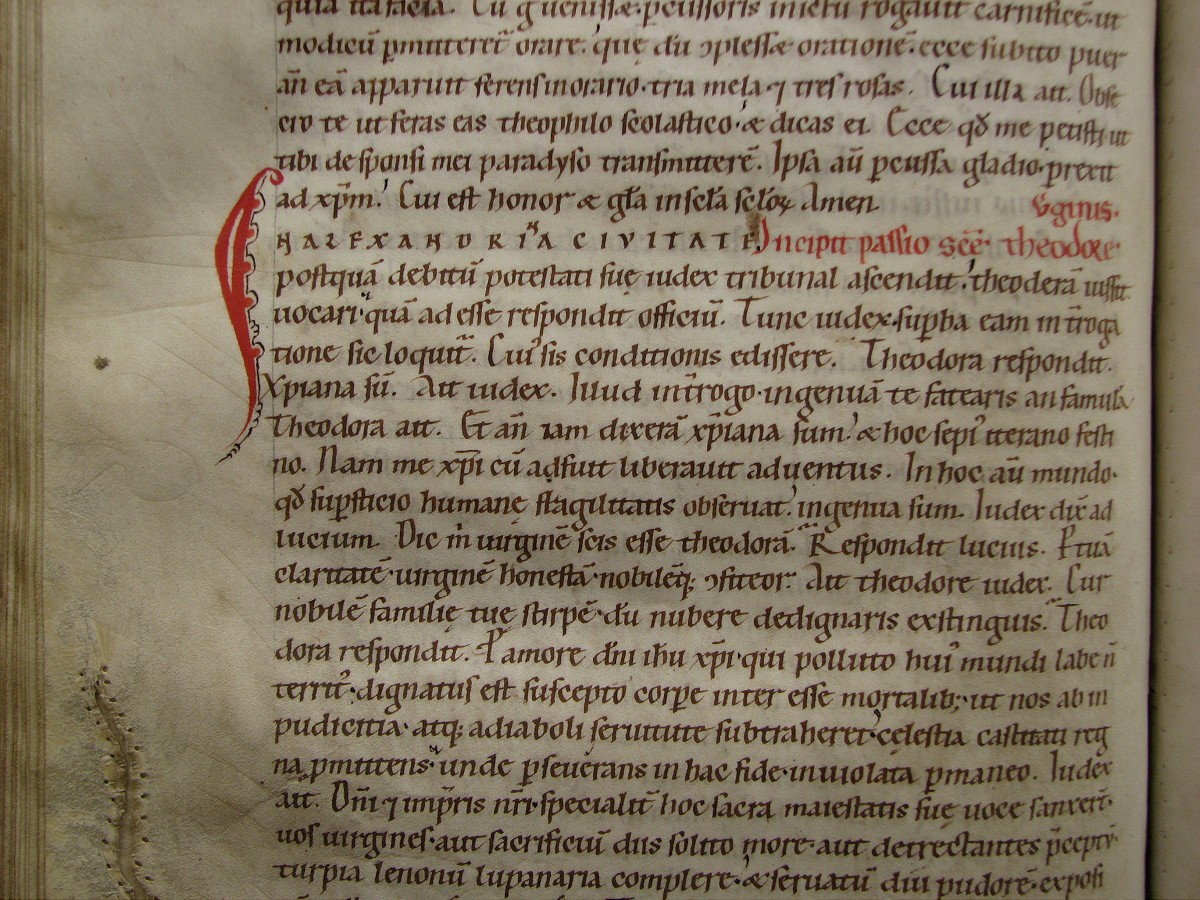 quia ita facia. Cu g̃ uenissæ pcussoris ınıctu rogauit carnificẽ ut
modicũ pmitteret̃ orare. quę dũ ↄplessæ orationẽ. ecce subito puer
añ eã apparuit ferens inorario tria mela ⁊ tres rosas. Cui illa ait. Obse
cro te ut feras eas theophilo scolastico. & dicas ei. Ecce qđ me petisti ut
tibi de sponsi mei paradyso transmitterẽ. Ipsa aũ pcussa gladio prexit
ad xp̃m. Cui est honor & gl̃a in scl̃a scl̃oꝝ Amen.
ỽginis.
IN ALEXANDRINA CIVITATE Incipit passio scẽ theodore
postquã debitũ potestati suę iudex tribunal ascendit. theoderã iussit
uocari quã adesse respondit officiũ. Tunc iudex supba eam int̃roga
tione sic loquit̃. Cui' sis conditionis edissere. Theodora respondit.
Xpiana sũ. Ait iudex. Illud int̃rogo ingenuã te fatearis an famulã
Theodora ait. Et añ iam dixerã xp̃iana sum. & hoc sepi' iterano festi
no. Nam me xp̃i cũ adfuit liberauit aduentus. In hoc aũ mundo
qđ supsticio humanę flagilitatis obseruat. ingenua sum. Iudex dix̃ ad
lucium. Dic m̃ uirginẽ scis esse theodorã. Respondit lucius. P tuã
claritatẽ uirginẽ honestã nobilẽq; ↄfiteor. Ait theodore iudex. Cur
nobilẽ familię tuę stirpẽ dũ nubere dedignaris exstinguis. Theo
dora respondit. P amore dñi ihu xp̃i qui polluto hui' mundi labe ñ
territ' dignatus est suscepto corpe inter esse mortalib; ut nos ab in
pudicitia atq; adiaboli seruitute subtraheret celestia castitati reg
na pmittens unde pseuerans in hac fide inuiolata pmaneo. Iudex
ait. Dñi ⁊ impris nri specialit̃ hoc sacra maiestatis suę uoce sanxer̃
uos uirgines aut sacrificiũ diis solito more aut detrectantes p̃ceptũ
turpia lenonũ lupanaria complere & seruatũ diu pudorẽ exposi